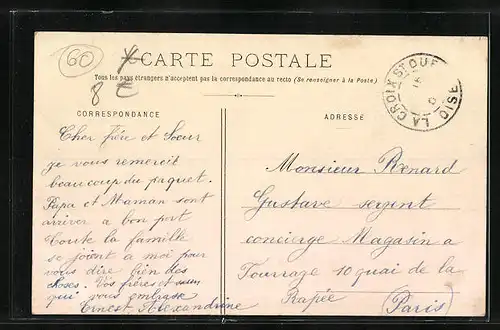 60
CARTE POSTALE
Tous les pays étrangers n'acceptent pas la correspondance au recto (Se renseigner à la Poste)
8 E
LA CROIX ST OUEN
OISE
CORRESPONDANCE
Cher frère et Sœur
je vous remercit
beaucoup du paquet.
Papa et Maman sont
arriver a bon port
toute la famille
se joient a moi pour
vous dire bien des
choses. Vos frères et sœur
qui vous embrasse
Ernest Alexandrine
ADRESSE
Monsieur Renard
Gustave sergent
concierge Magasin a
Fourrage 10 quai de la
Rapée (Paris)